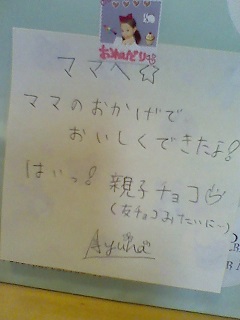 ママへ☆
ママのおかげで
おいしくできたよ!
はいっ! 親子チョコ♡
(友チョコみたいにー)
Ayuha